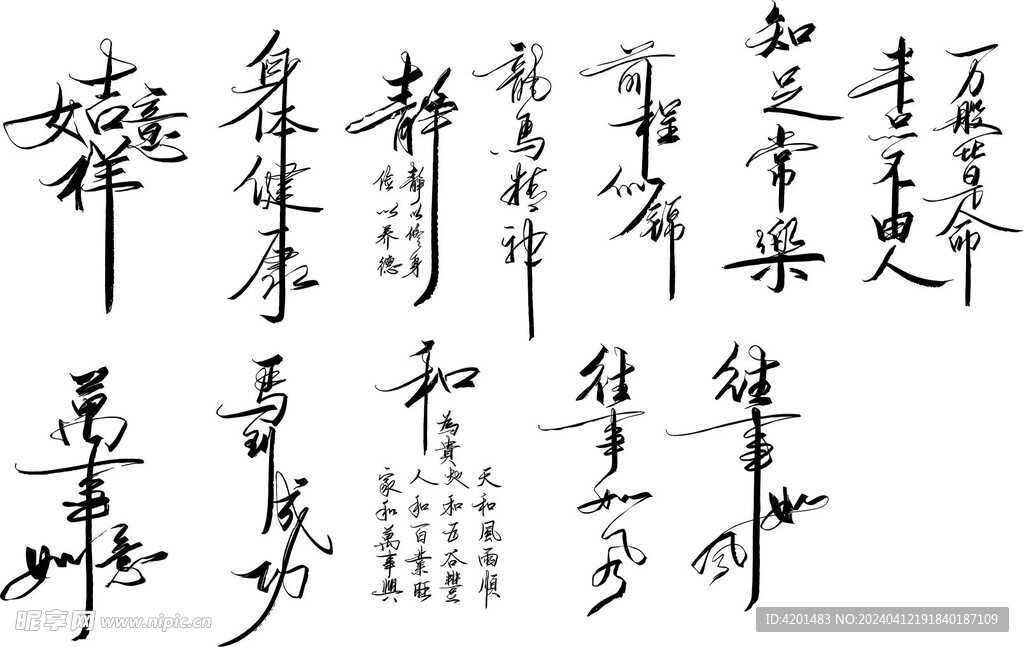 吉祥如意
身体健康
静
静以修身
俭以养德
龍馬精神
前程似錦
知足常樂
万般皆是命
半点不由人
萬事如意
馬到成功
和
為貴
天和風雨順
地和五谷豐
人和百業旺
家和萬事興
往事如风
往事如风
昵享网 www.nipic.cn
ID:4201483 NO:20240412191840187109